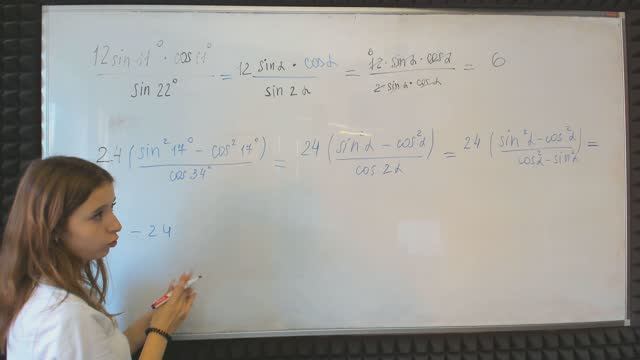 12 sin 11° · cos 11° / sin 22° = 12 sin α · cos α / sin 2α = 12 · sin α · cos α / 2 · sin α · cos α = 6
24 ( sin² 17° - cos² 17° / cos 34° ) = 24 ( sin α - cos² α / cos 2α ) = 24 ( sin² α - cos² α / cos² α - sin² α ) =
- 24